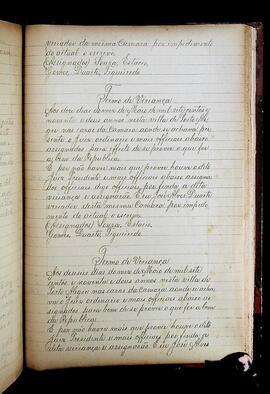 vereador da mesma Camara por impedimento
do actual o escrevi.
(Assignados) Souza, Estacio,
Gomes, Duarte, Siqueira.
Termo de Veriança
Aos dez dias do mez de Maio de mil sete centos e
noventa e dous annos nesta villa de Porto Ale-
gre nas casas da Camara aonde se achava pre-
sente o Juiz ordinario e mais officiaes abaixo
assignados para effeito de se prover o que for
a bem da Republica.
E por não haver mais que prover houve o dito
Juiz Presidente e mais officiaes abaixo assigna-
dos officiaes digo officiaes por finda a dita
veriança e assignarão. E eu José Alves Duarte
vereador desta mesma Camara por impedi-
mento do actual o escrevi.
(Assignados) Souza, Estacio,
Gomes, Duarte, Siqueira.
Termo de Veriança
Aos deseseis dias do mez de Maio de mil sete
centos e noventa e dous annos nesta villa de
Porto Alegre nas casas da Camara aonde se acha-
va o Juiz ordinario e mais officiaes abaixo as-
signados para bem de se prover o que for a bem
da Republica.
E por não haver mais que prover houve o dito
Juiz Presidente e mais officiaes por finda a
dita veriança e assignarão. E eu José Alves